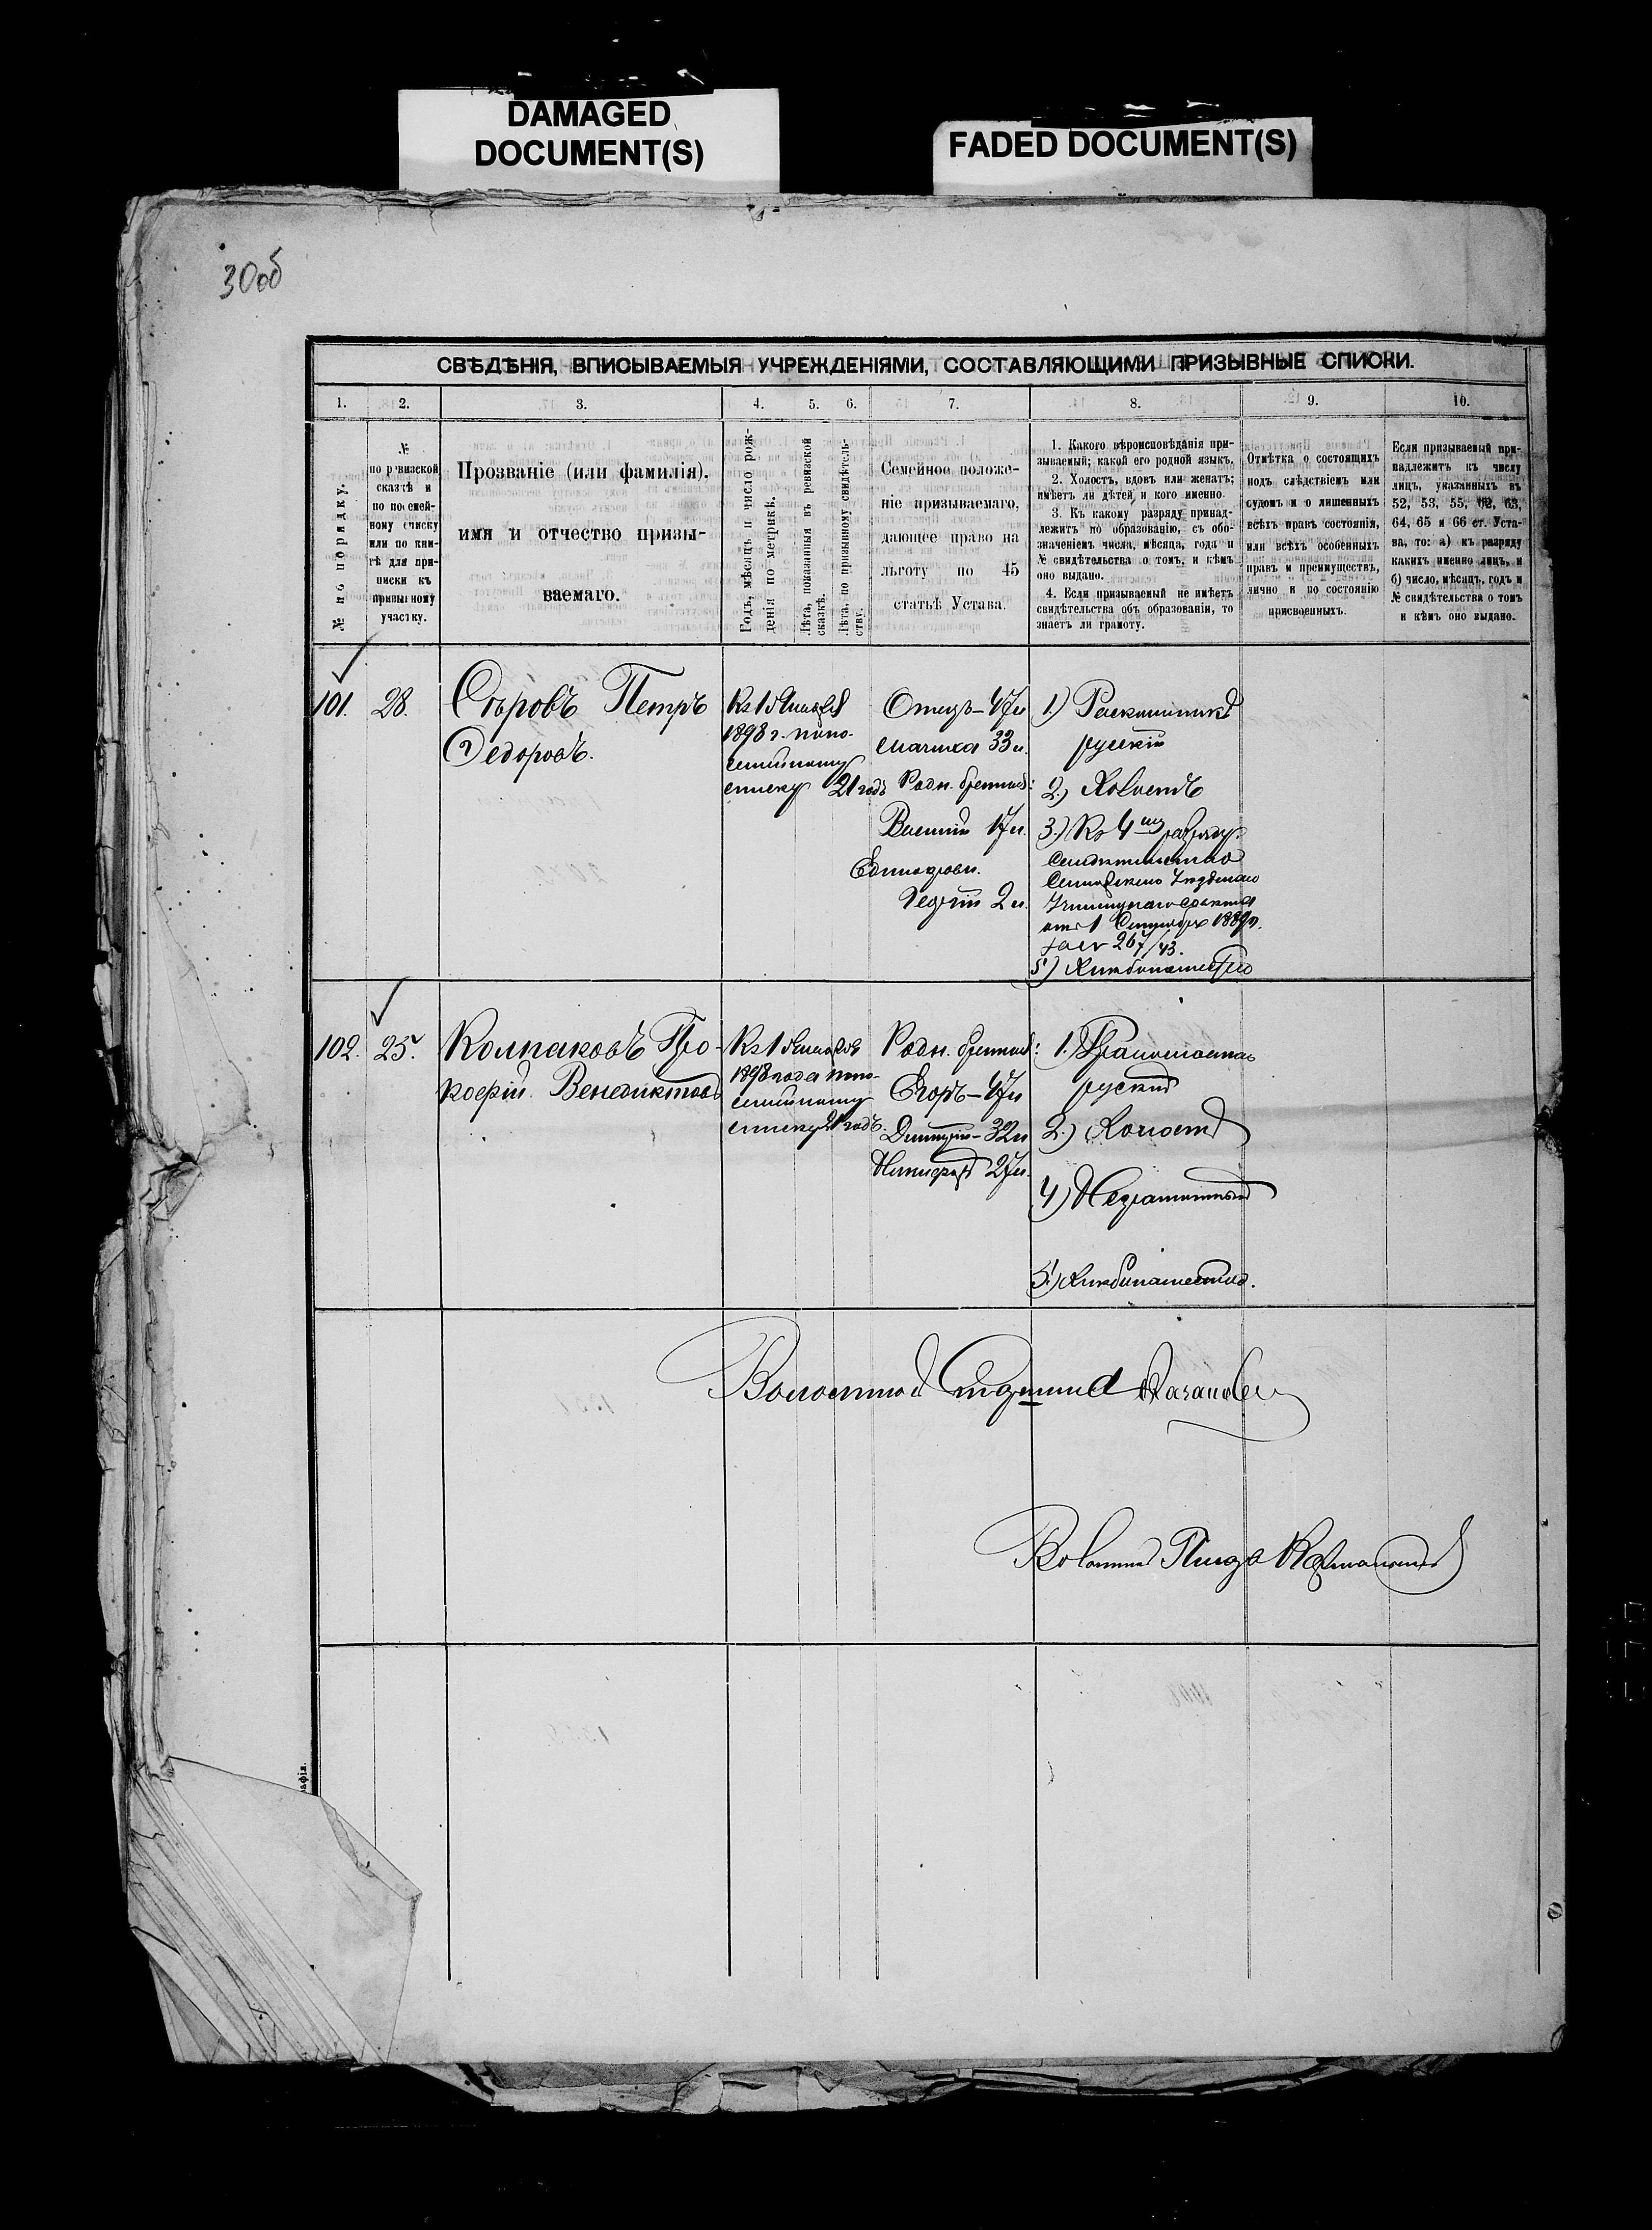 DAMAGED
DOCUMENT(S)
FADED DOCUMENT(S)
30об
СВѢДѢНІЯ, ВПИСЫВАЕМЫЯ УЧРЕЖДЕНІЯМИ, СОСТАВЛЯЮЩИМИ ПРИЗЫВНЫЕ СПИСКИ.
1. 2. 3. 4. 5. 6. 7. 8. 9. 10.
№ по порядку.
№
по ревизской
сказкѣ и
по посемей-
ному списку
или по кни-
гѣ для при-
писки къ
призывному
участку.
Прозваніе (или фамилія),
имя и отчество призы-
ваемаго.
Годъ, мѣсяцъ и число рож-
денія по метрикѣ.
Лѣта, показанныя въ ревизской
сказкѣ.
Лѣта, по призывному свидѣтель-
ству.
Семейное положе-
ніе призываемаго,
дающее право на
льготу по 45
статьѣ Устава.
1. Какого вѣроисповѣданія при-
зываемый; какой его родной языкъ.
2. Холостъ, вдовъ или женатъ;
имѣетъ ли дѣтей и кого именно.
3. Къ какому разряду принад-
лежитъ по образованію, съ обо-
значеніемъ числа, мѣсяца, года и
№ свидѣтельства о томъ, и кѣмъ
оно выдано.
4. Если призываемый не имѣетъ
свидѣтельства объ образованіи, то
знаетъ ли грамоту.
Отмѣтка о состоящихъ
подъ слѣдствіемъ или
судомъ и о лишенныхъ
всѣхъ правъ состоянія,
или всѣхъ особенныхъ
правъ и преимуществъ,
лично и по состоянію
присвоенныхъ.
Если призываемый при-
надлежитъ къ числу
лицъ, указанныхъ въ
52, 53, 55, 62, 63,
64, 65 и 66 ст. Уста-
ва, то: а) къ разряду
какихъ именно лицъ, и
б) число, мѣсяцъ, годъ и
№ свидѣтельства о томъ
и кѣмъ оно выдано.
101. 28.
Сѣровъ Петръ
Ѳедоровъ.
Къ 1 Января
1898 г. по по-
семейному
списку 21 годъ
Отецъ - 47 л
мачиха 33 л.
Родн. братья:
Василій 17 л.
Единокровн.
2 л.
1.) Раскольникъ
русскій
2.) Холостъ
3.) Къ 4му разряду.
Свидѣтельство
Училищнаго Совѣта
отъ 1 Сентября
за № 267/43.
5) Хлѣбопашество
102. 25.
Колпаковъ Про-
кофій Венедиктовъ
Къ 1 Января
1898 года по по-
семейному
списку 21 годъ.
Родн. братья:
Егоръ - 47 л
Дмитрій - 32 л
27 л.
1.)
русскій
2.) Холостъ
4.) Неграмотный
5.) Хлѣбопашество.
Волостной Старшина
Волостной Писарь